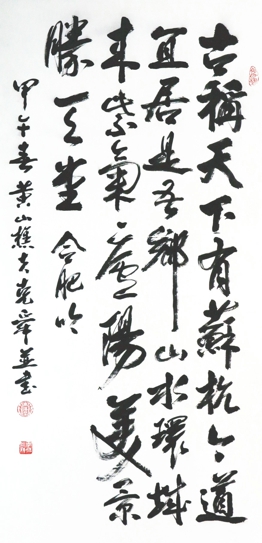 古稱天下有蘇杭今道
宜居是吾鄉山水環城
來紫氣廬陽美景
勝天堂 合肥吟
甲午春黄山樵夫並書